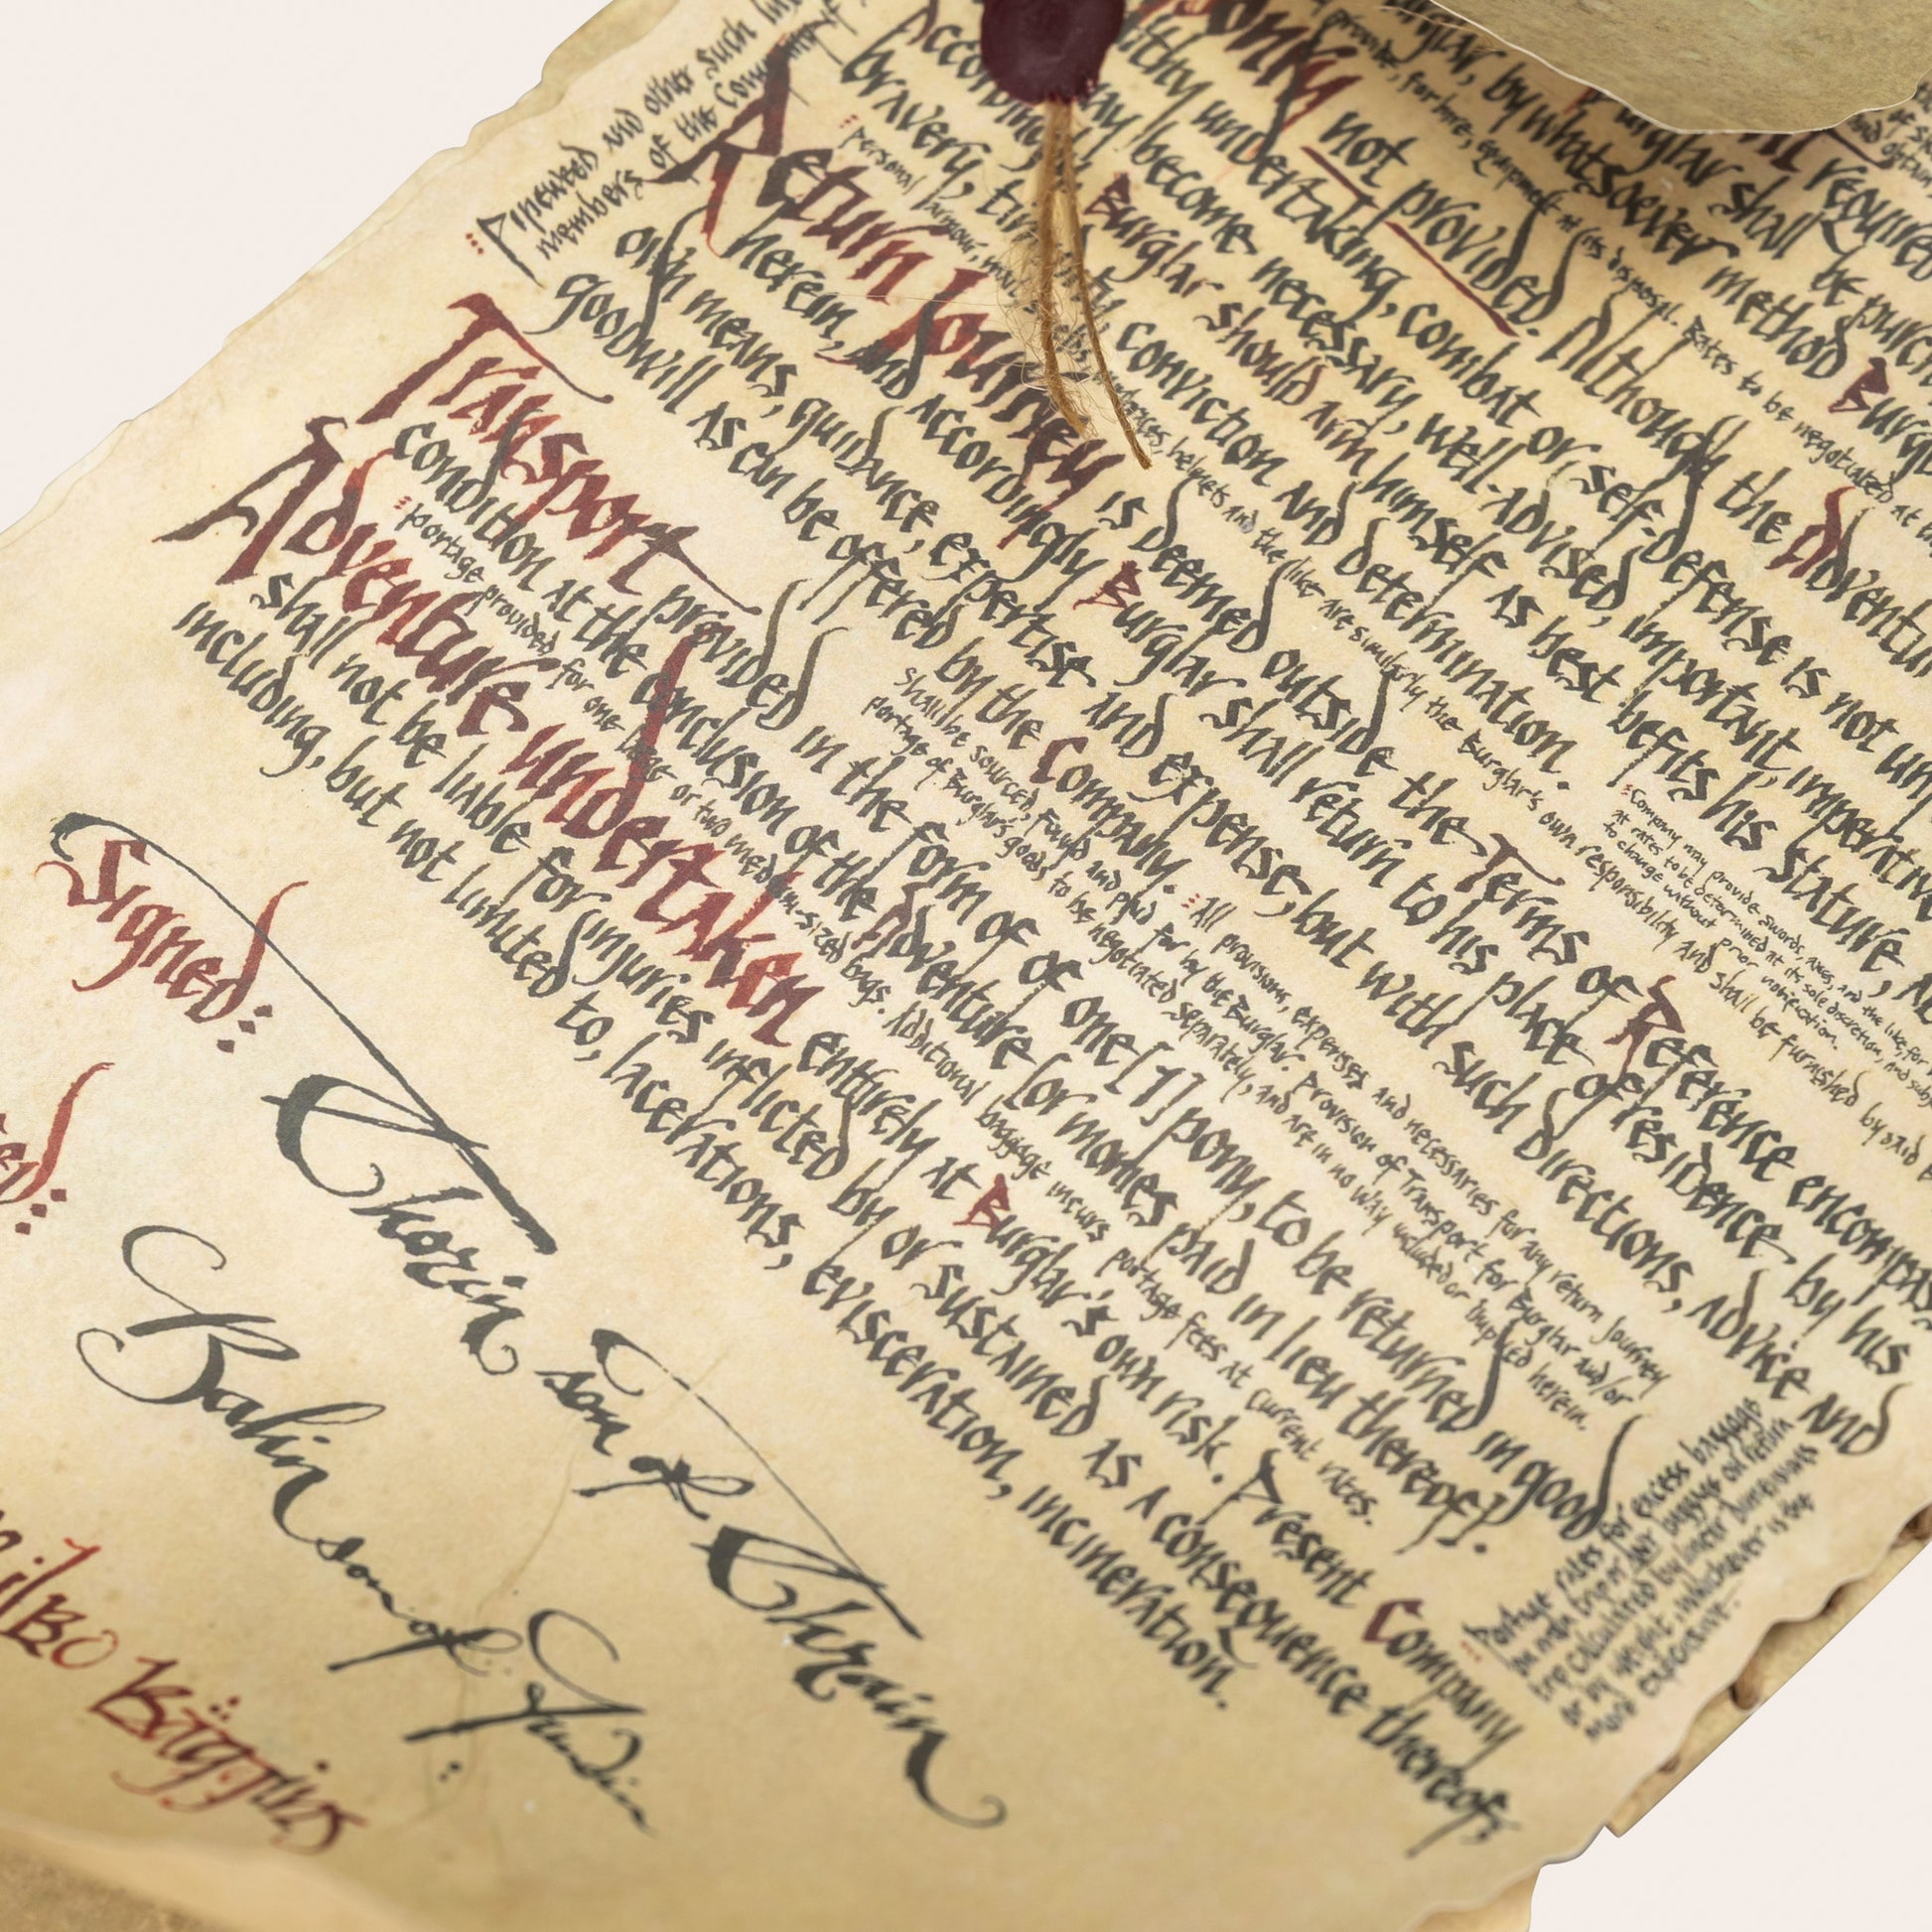 urglar shall be purch
required
by whatsoever method Burgl
provide, for hire, equipment at its disposal. Rates to be negotiated at
not provided. Although the Adventur
undertaking, combat or self-defense is not
become necessary, well-advised, important, imperative
Burglar should arm himself as best befits his stature,
Company may provide swords, axes, and the like, for
at rates to be determined at its sole discretion, and subj
to change without prior notification.
bravery, conviction and determination.
personal armour, mail, helmets and the like are similarly the Burglar's own responsibility and shall be furnished by said
members of the Com
and other such
Return Journey is deemed outside the Terms of Reference encompas
herein, and accordingly Burglar shall return to his place of residence by his
own means, guidance, expertise and expense, but with such directions, advice and
goodwill as can be offered by the Company. All provisions, expenses and necessaries for any return journey
shall be sourced, found and paid for by the Burglar. Provision of Transport for Burglar and/or
portage of Burglar's goods to be negotiated separately, and are in no way included or implied herein.
Transport provided in the form of of one [1] pony, to be returned in good
condition at the conclusion of the Adventure [or monies paid in lieu thereof].
portage provided for one large or two medium-sized bags. Additional baggage incurs portage fees at current rates.
portage rates for excess baggage
are calculated by linear dimensions
or by weight, whichever is the
more expensive.
Adventure undertaken entirely at Burglar's own risk. Present Company
shall not be liable for injuries inflicted by or sustained as a consequence thereof,
including, but not limited to, lacerations, evisceration, incineration.
Signed:
Thorin son of Thrain
Balin son of Fundin
ed:
ilbo Baggins